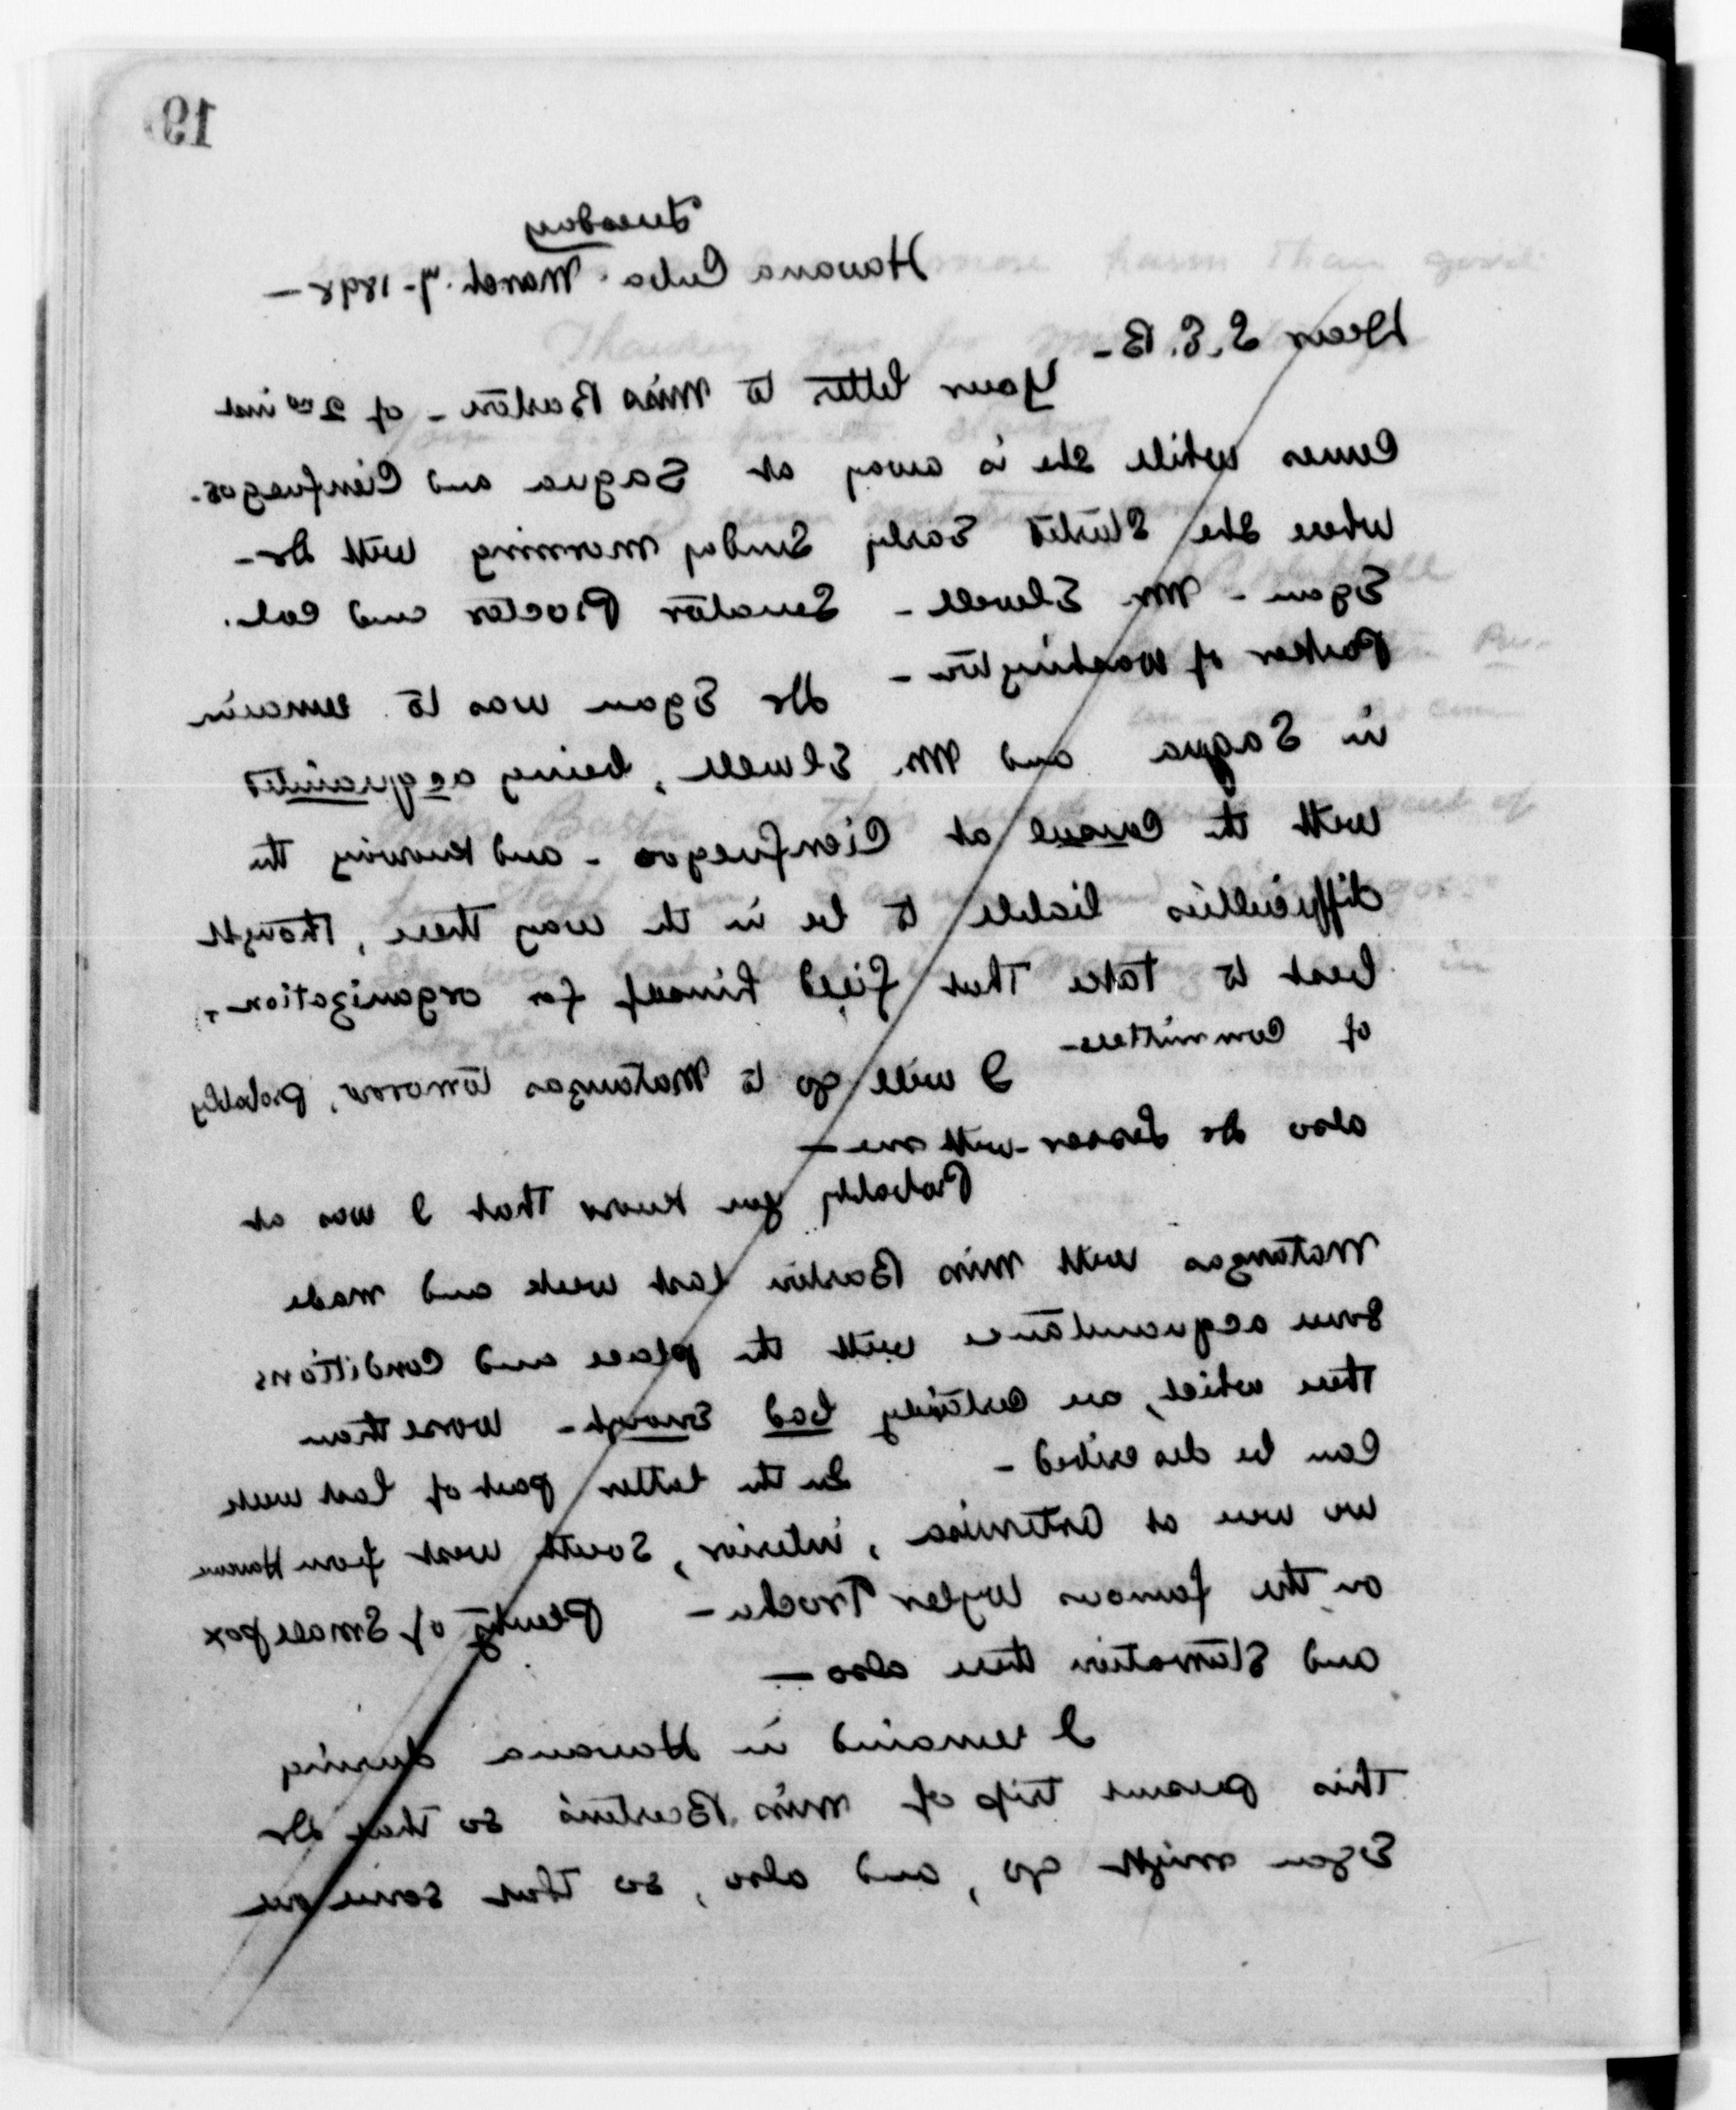 19
Tuesday
Havana Cuba. March. 7-1898 -
Dear S.E.B. -
Your letter to Miss Barton - of 2nd inst
Comes while she is away at Sagua and Cienfuegos.
where she Started Early Sunday morning with Dr -
Egan - Mr. Elwell - Senator Proctor and Col.
Parker of Washington - Dr Egan was to remain
in Sagua and Mr. Elwell, being acquainted
with the Consul at Cienfuegos - and knowing the
difficulties liable to be in the way there, thought
best to take that field himself for organization,
of committees - I will go to Matanzas tomorrow, probably
also Dr Lesser - with me -
Probably you know that I was at
Matanzas with Miss Barton last week and made
some acquaintance with the place and conditions
there which, are certainly bad enough - worse than
can be described - In the latter part of last week
we were at Artemisa, interior, South west from Havana
on the famous Wyler Trocha - Plenty of Small pox
and Starvation there also -
I remaind in Havana during
this present trip of Miss Barton's so that Dr
Egan might go, and also, so that some one